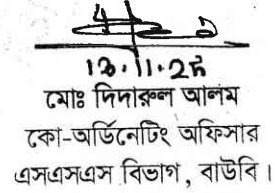 মোঃ দিদারুল আলম
কো-অর্ডিনেটিং অফিসার
এসএসএস বিভাগ, বাউবি।